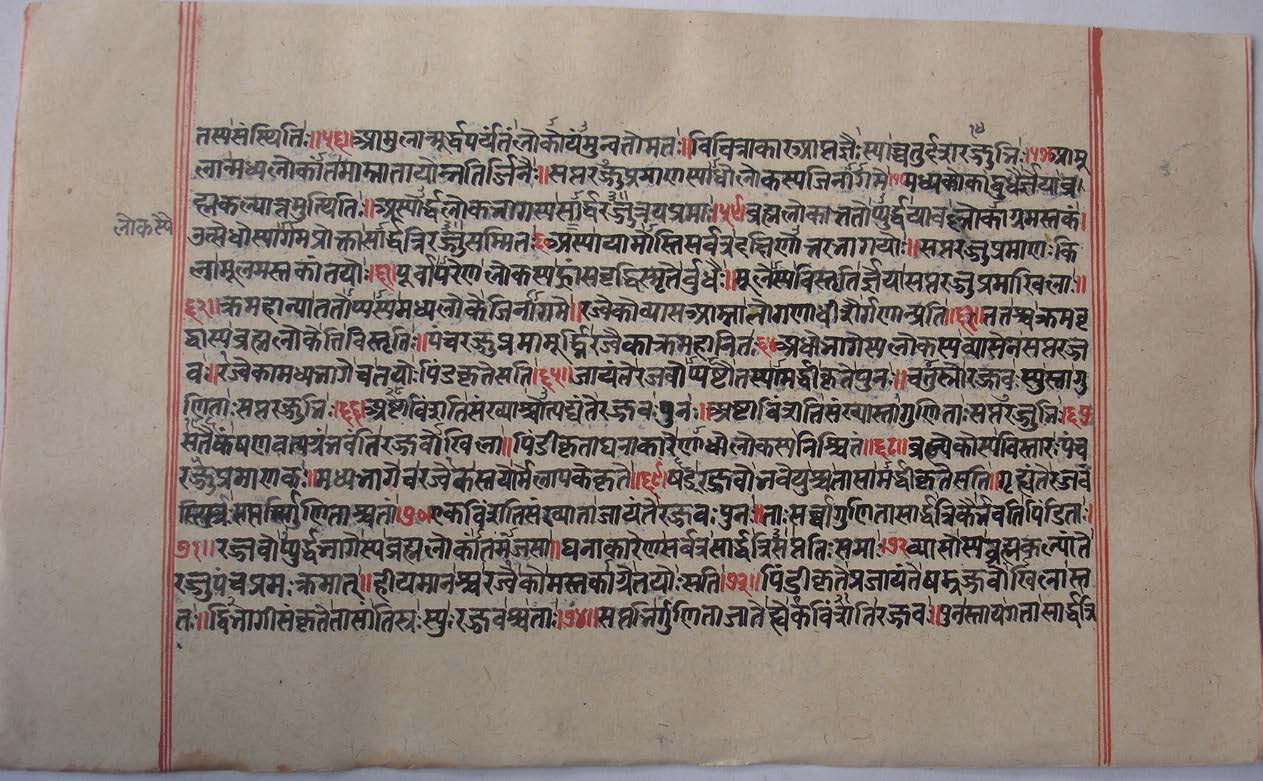 तस्यसंस्थितिः॥५६॥आमुलान्मूर्द्धपर्यंतंलोकोयमुन्नतोमतः॥विचित्राकारआप्तज्ञैःस्याच्चतुर्दशरज्जुभिः॥५७॥आमू
लान्मध्यलोकांतमाम्नातायोन्नतिर्जिनैः॥सप्तरज्जुप्रमाणस्याधोलोकस्यजिनागमे॥मध्यलोकाद्बुधैर्ज्ञेयाब्र
ह्मकल्पान्नमुत्थितिः॥अस्योर्द्धलोकभागस्यसार्द्धरज्जुत्रयप्रमा॥५९॥ब्रह्मलोकात्ततोप्यूर्द्धंयावल्लोकाग्रमस्तकं।
लोकस्यै
उत्सेधोस्यागमेप्रोक्तःसार्द्धत्रिरज्जुसम्मितः६०अस्यायामोस्तिसर्वत्रदक्षिणोत्तरभागयोः॥सप्तरज्जुप्रमाणःकि
लामूलमस्तकांतयोः॥६१॥पूर्वापरेणलोकस्यह्रासवृद्धिस्मृतेर्बुधैः॥मूलेस्यविस्तृतिर्ज्ञेयासप्तरज्जुप्रमाखिलाः॥
६२॥क्रमहान्याततोप्यस्यमध्यलोकेजिनागमे॥रज्वेकोव्यासआम्नातोगणाधीशैर्गणान्प्रति॥६३॥ततश्चक्रमवृ
द्ध्यास्यब्रह्मलोकेतिविस्तृतिः॥पंचरज्जुप्रमामूर्द्ध्निरज्वैकाक्रमहानितः६४अधोभागेस्यलोकस्यव्यासेनसप्तरज्ज
वः॥रज्वेकामध्यभागेचतयोःपिंडकृतेसति॥६५॥जायंतेरज्जवोप्यष्टौतस्यामर्द्धीकृतेपुनः॥चतुस्रोरज्जवःस्युस्तागु
णिताःसप्तरज्जुभिः॥६६॥अष्टाविंशतिसंख्याश्चोत्पद्यंतेरज्जवःपुनः॥अष्टाविंशतिसंख्यास्तागुणिताःसप्तरज्जुभिः॥६७
सतैकंषणवत्यग्रंभवंतिरज्जवोखिलाः॥पिंडीकृताघनाकारेणाधोलोकस्यनिश्चितं॥६८॥ब्रह्मलोकस्यविस्तारःपंच
रज्जुप्रमाणकः॥मध्यभागेचरज्वेकस्तयोर्मेलापकेकृते॥६९॥षड्रज्जवोभवेयुश्चतासामर्द्धीकृतेसति॥गृह्यंतेरज्जव
सप्तभिर्गुणिताश्चता॥७०॥एकविंशतिसंख्याताजायंतेरज्जवःपुनः॥ताःसर्वागुणितासार्द्धत्रिकैर्भवंतिपिंडिताः॥
७१॥रज्जवोप्यूर्द्धभागेस्यब्रह्मलोकांतमंजसा॥घनाकारेणसर्वत्रसार्द्धत्रिसप्ततिःसमाः॥७२व्यासोस्यब्रह्मकल्पांते
रज्जुपंचप्रमःक्रमात्॥हीयमानश्चरज्वेकोमस्तकाग्रेतयोःसति॥७३॥पिंडीकृतेप्रजायंतेषड्रज्जवोखिलास्त
तः॥द्विभागीसंकृतेतासांतिस्रःस्युःरज्जवश्चताः॥७४॥सप्तभिर्गुणिताजातेह्येकविंशतिरज्जवः॥पुनस्ताद्यगतासार्द्धत्रि